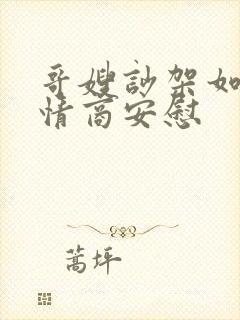 哥嫂訪架如
情商安慰
蒿坪